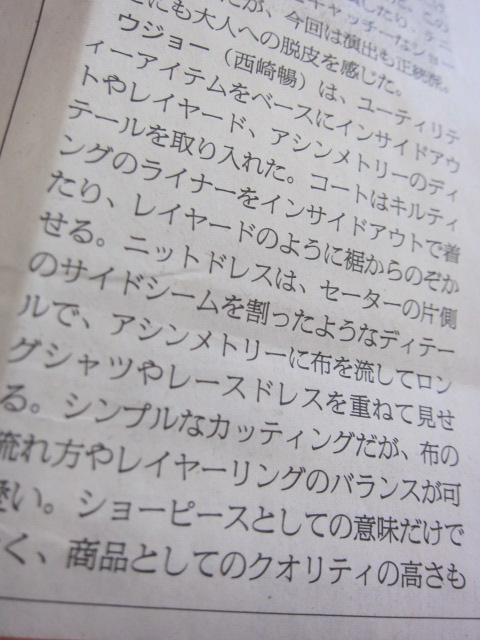 キャッチーなショー
だが、今回は演出も正統派。
にも大人への脱皮を感じた。
ウジョー（西崎暢）は、ユーティリテ
ィーアイテムをベースにインサイドアウ
トやレイヤード、アシンメトリーのディ
テールを取り入れた。コートはキルティ
ングのライナーをインサイドアウトで着
たり、レイヤードのように裾からのぞか
せる。ニットドレスは、セーターの片側
のサイドシームを割ったようなディテー
ルで、アシンメトリーに布を流してロン
グシャツやレースドレスを重ねて見せ
る。シンプルなカッティングだが、布の
流れ方やレイヤーリングのバランスが可
愛い。ショーピースとしての意味だけで
く、商品としてのクオリティの高さも